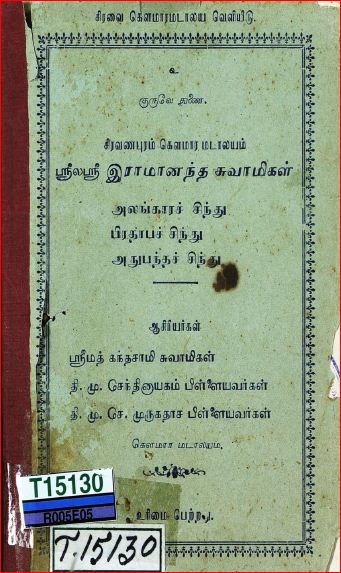 சிரவை கௌமாரமடாலய வெளியீடு.
உ
குருவே துணை.
சிரவணபுரம் கௌமார மடாலயம்
ஸ்ரீலஸ்ரீ இராமானந்த சுவாமிகள்
அலங்காரச் சிந்து
பிரதாபச் சிந்து
அநுபந்தச் சிந்து
ஆசிரியர்கள்
ஸ்ரீமத் கந்தசாமி சுவாமிகள்
தி. மு. செந்திநாயகம் பிள்ளையவர்கள்
தி. மு. செ. முருகதாச பிள்ளையவர்கள்
கௌமார மடாலயம்.
T15130
R005E05
உரிமை பெற்றது.
T.15130